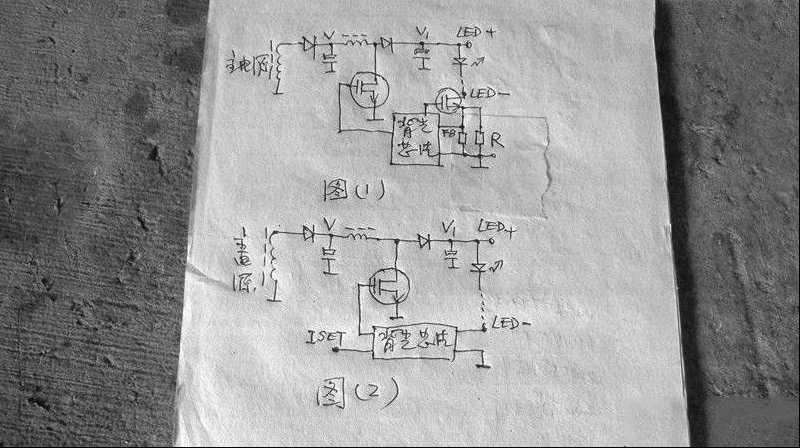 V V₁ LED+
主电源
LED-
背光
芯片
FB
R
图(1)
V V₁ LED+
主电源
LED-
ISET
背光芯片
图(2)